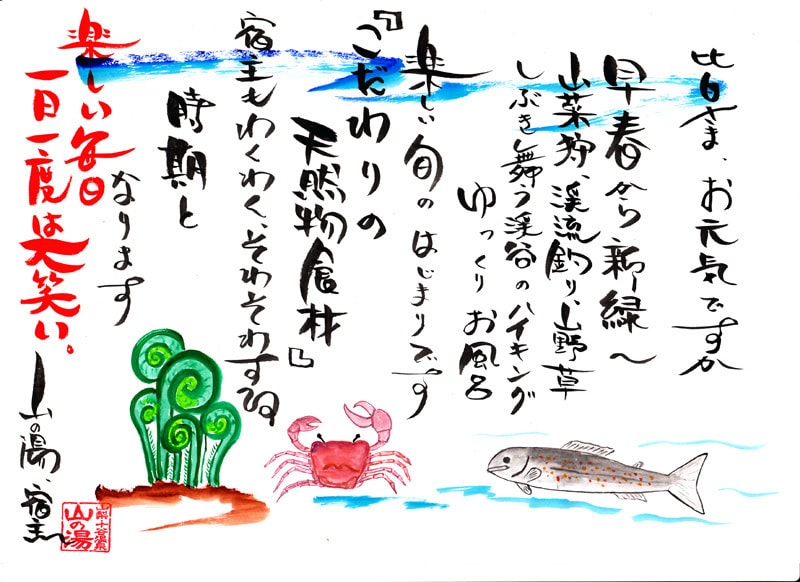 皆さま、お元気ですか
早春から新緑〜
山菜狩、渓流釣り、山野草
しぶき舞う渓谷のハイキング
ゆっくりお風呂
楽しい旬のはじまりです
『こだわりの
天然物食材』
宿主もわくわく、そわそわする
時期と
なります
楽しい毎日
一日一度は大笑い。
山の湯、宿主
山の湯